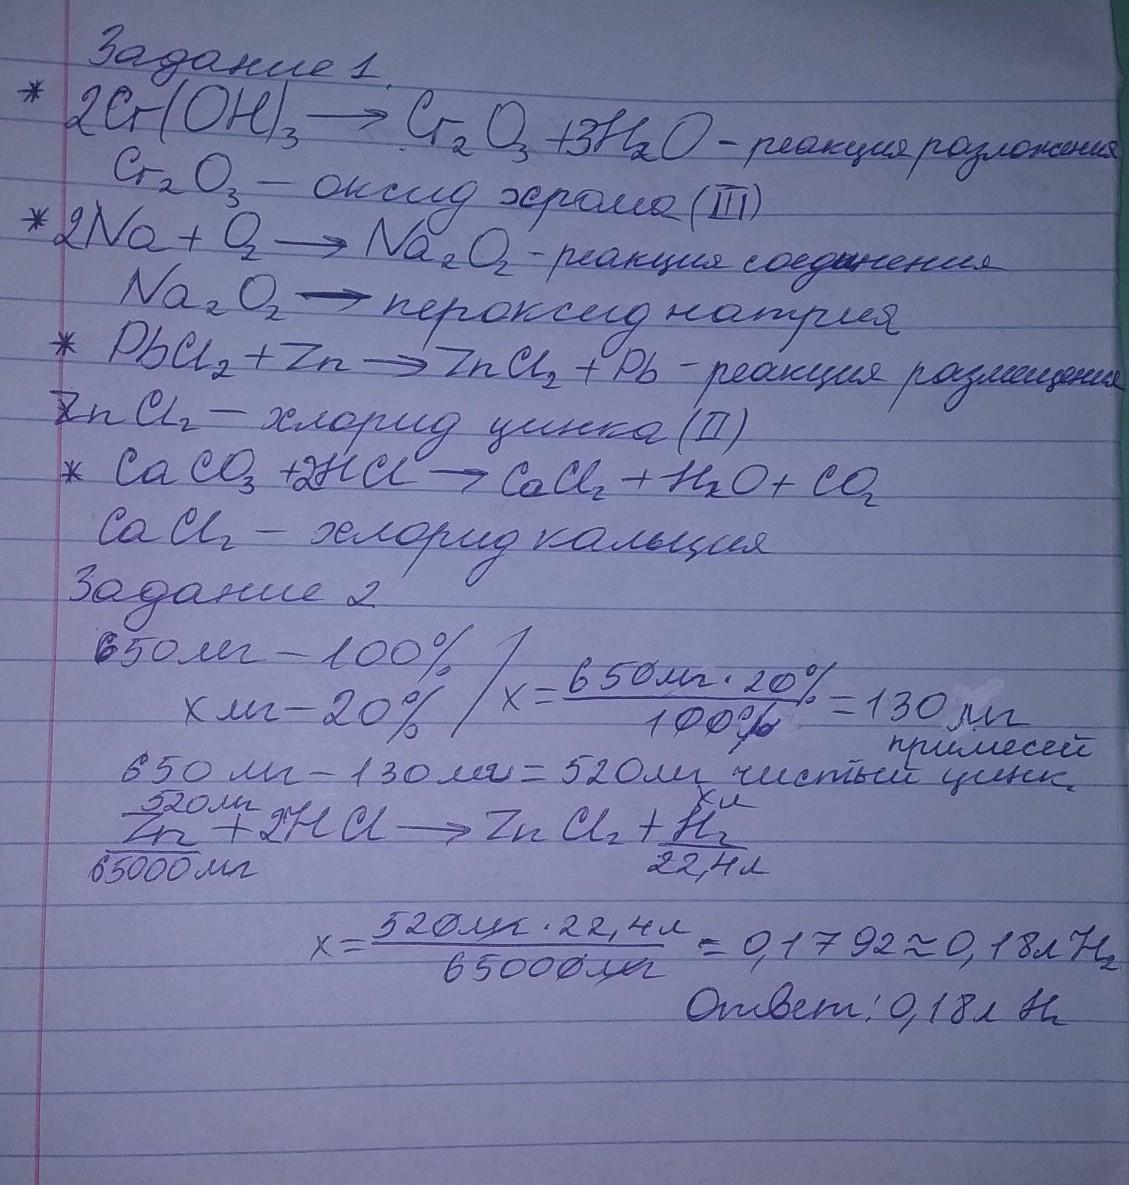 Задание 1.
* 2Cr(OH)₃ → Cr₂O₃ + 3H₂O - реакция разложения
Cr₂O₃ - оксид хрома (III)
* 2Na + O₂ → Na₂O₂ - реакция соединения
Na₂O₂ → пероксид натрия
* PbCl₂ + Zn → ZnCl₂ + Pb - реакция размещения
ZnCl₂ - хлорид цинка (II)
* CaCO₃ + 2HCl → CaCl₂ + H₂O + CO₂
CaCl₂ - хлорид кальция
Задание 2
650 мг - 100%
x мг - 20% / x = 650 мг · 20% / 100% = 130 мг
примесей
650 мг - 130 мг = 520 мг чистый цинк.
520 мг x л
Zn + 2HCl → ZnCl₂ + H₂
65000 мг 22,4 л
x = 520 мг · 22,4 л / 65000 мг = 0,1792 ≈ 0,18 л H₂
Ответ: 0,18 л H₂